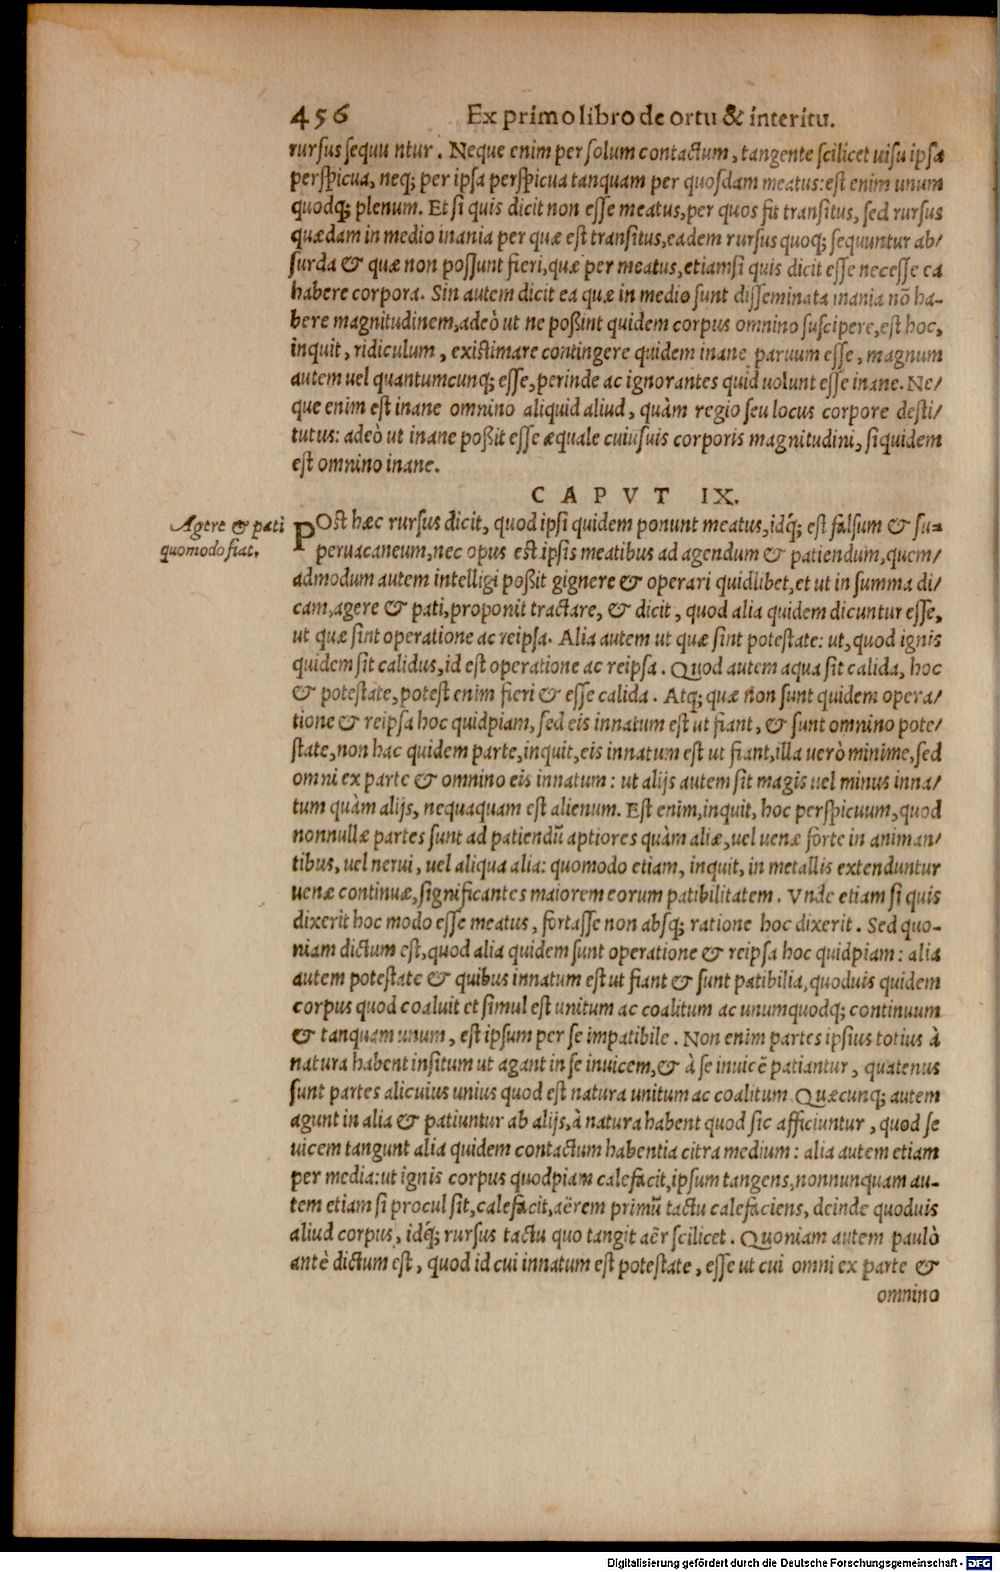 456 Ex primo libro de ortu & interitu.
rursus sequu ntur. Neque enim per solum contactum, tangente scilicet uisu ipsa
perspicua, neq; per ipsa perspicua tanquam per quosdam meatus: est enim unum
quodq; plenum. Et si quis dicit non esse meatus, per quos fit transitus, sed rursus
quædam in medio inania per quæ est transitus, eadem rursus quoq; sequuntur ab/
surda & quæ non possunt fieri, quæ per meatus, etiamsi quis dicit esse necesse ea
habere corpora. Sin autem dicit ea quæ in medio sunt disseminata inania nõ ha-
bere magnitudinem, adeò ut ne poßint quidem corpus omnino suscipere, est hoc,
inquit, ridiculum, existimare contingere quidem inane paruum esse, magnum
autem uel quantumcunq; esse, perinde ac ignorantes quid uolunt esse inane. Ne/
que enim est inane omnino aliquid aliud, quàm regio seu locus corpore desti/
tutus: adeò ut inane poßit esse æquale cuiusuis corporis magnitudini, siquidem
est omnino inane.
CAPVT IX.
Agere & pati
quomodo fiat.
POst hæc rursus dicit, quod ipsi quidem ponunt meatus, idq́; est falsum & su-
peruacaneum, nec opus est ipsis meatibus ad agendum & patiendum, quem/
admodum autem intelligi poßit gignere & operari quidlibet, et ut in summa di/
cam, agere & pati, proponit tractare, & dicit, quod alia quidem dicuntur esse,
ut quæ sint operatione ac reipsa. Alia autem ut quæ sint potestate: ut, quod ignis
quidem sit calidus, id est operatione ac reipsa. Quod autem aqua sit calida, hoc
& potestate, potest enim fieri & esse calida. Atq; quæ non sunt quidem opera/
tione & reipsa hoc quidpiam, sed eis innatum est ut fiant, & sunt omnino pote/
state, non hac quidem parte, inquit, eis innatum est ut fiant, illa uerò minime, sed
omni ex parte & omnino eis innatum: ut alijs autem sit magis uel minus inna/
tum quàm alijs, nequaquam est alienum. Est enim, inquit, hoc perspicuum, quod
nonnullæ partes sunt ad patiendũ aptiores quàm aliæ, uel uenæ forte in animan/
tibus, uel nerui, uel aliqua alia: quomodo etiam, inquit, in metallis extenduntur
uenæ continuæ, significantes maiorem eorum patibilitatem. Vnde etiam si quis
dixerit hoc modo esse meatus, fortasse non absq; ratione hoc dixerit. Sed quo-
niam dictum est, quod alia quidem sunt operatione & reipsa hoc quidpiam: alia
autem potestate & quibus innatum est ut fiant & sunt patibilia, quoduis quidem
corpus quod coaluit et simul est unitum ac coalitum ac unumquodq; continuum
& tanquam unum, est ipsum per se impatibile. Non enim partes ipsius totius à
natura habent insitum ut agant in se inuicem, & à se inuicẽ patiantur, quatenus
sunt partes alicuius unius quod est natura unitum ac coalitum. Quæcunq; autem
agunt in alia & patiuntur ab alijs, à natura habent quod sic afficiuntur, quod se
uicem tangunt alia quidem contactum habentia citra medium: alia autem etiam
per media: ut ignis corpus quodpiam calefacit, ipsum tangens, nonnunquam au-
tem etiam si procul sit, calefacit, aërem primũ tactu calefaciens, deinde quoduis
aliud corpus, idq́; rursus tactu quo tangit aër scilicet. Quoniam autem paulò
antè dictum est, quod id cui innatum est potestate, esse ut cui omni ex parte &
omnino
Digitalisierung gefördert durch die Deutsche Forschungsgemeinschaft - DFG